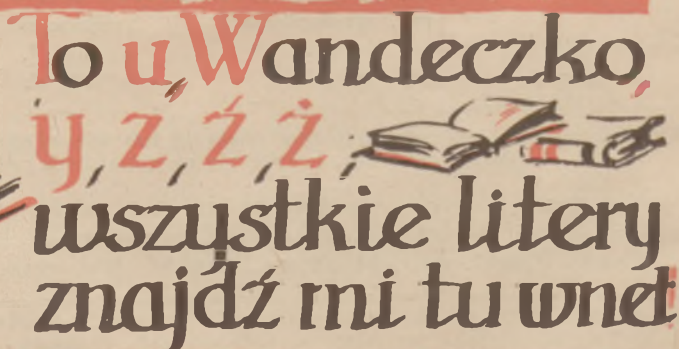 To u, Wandeczko,
y, z, ź, ż,
wszystkie litery
znajdź mi tu wnet